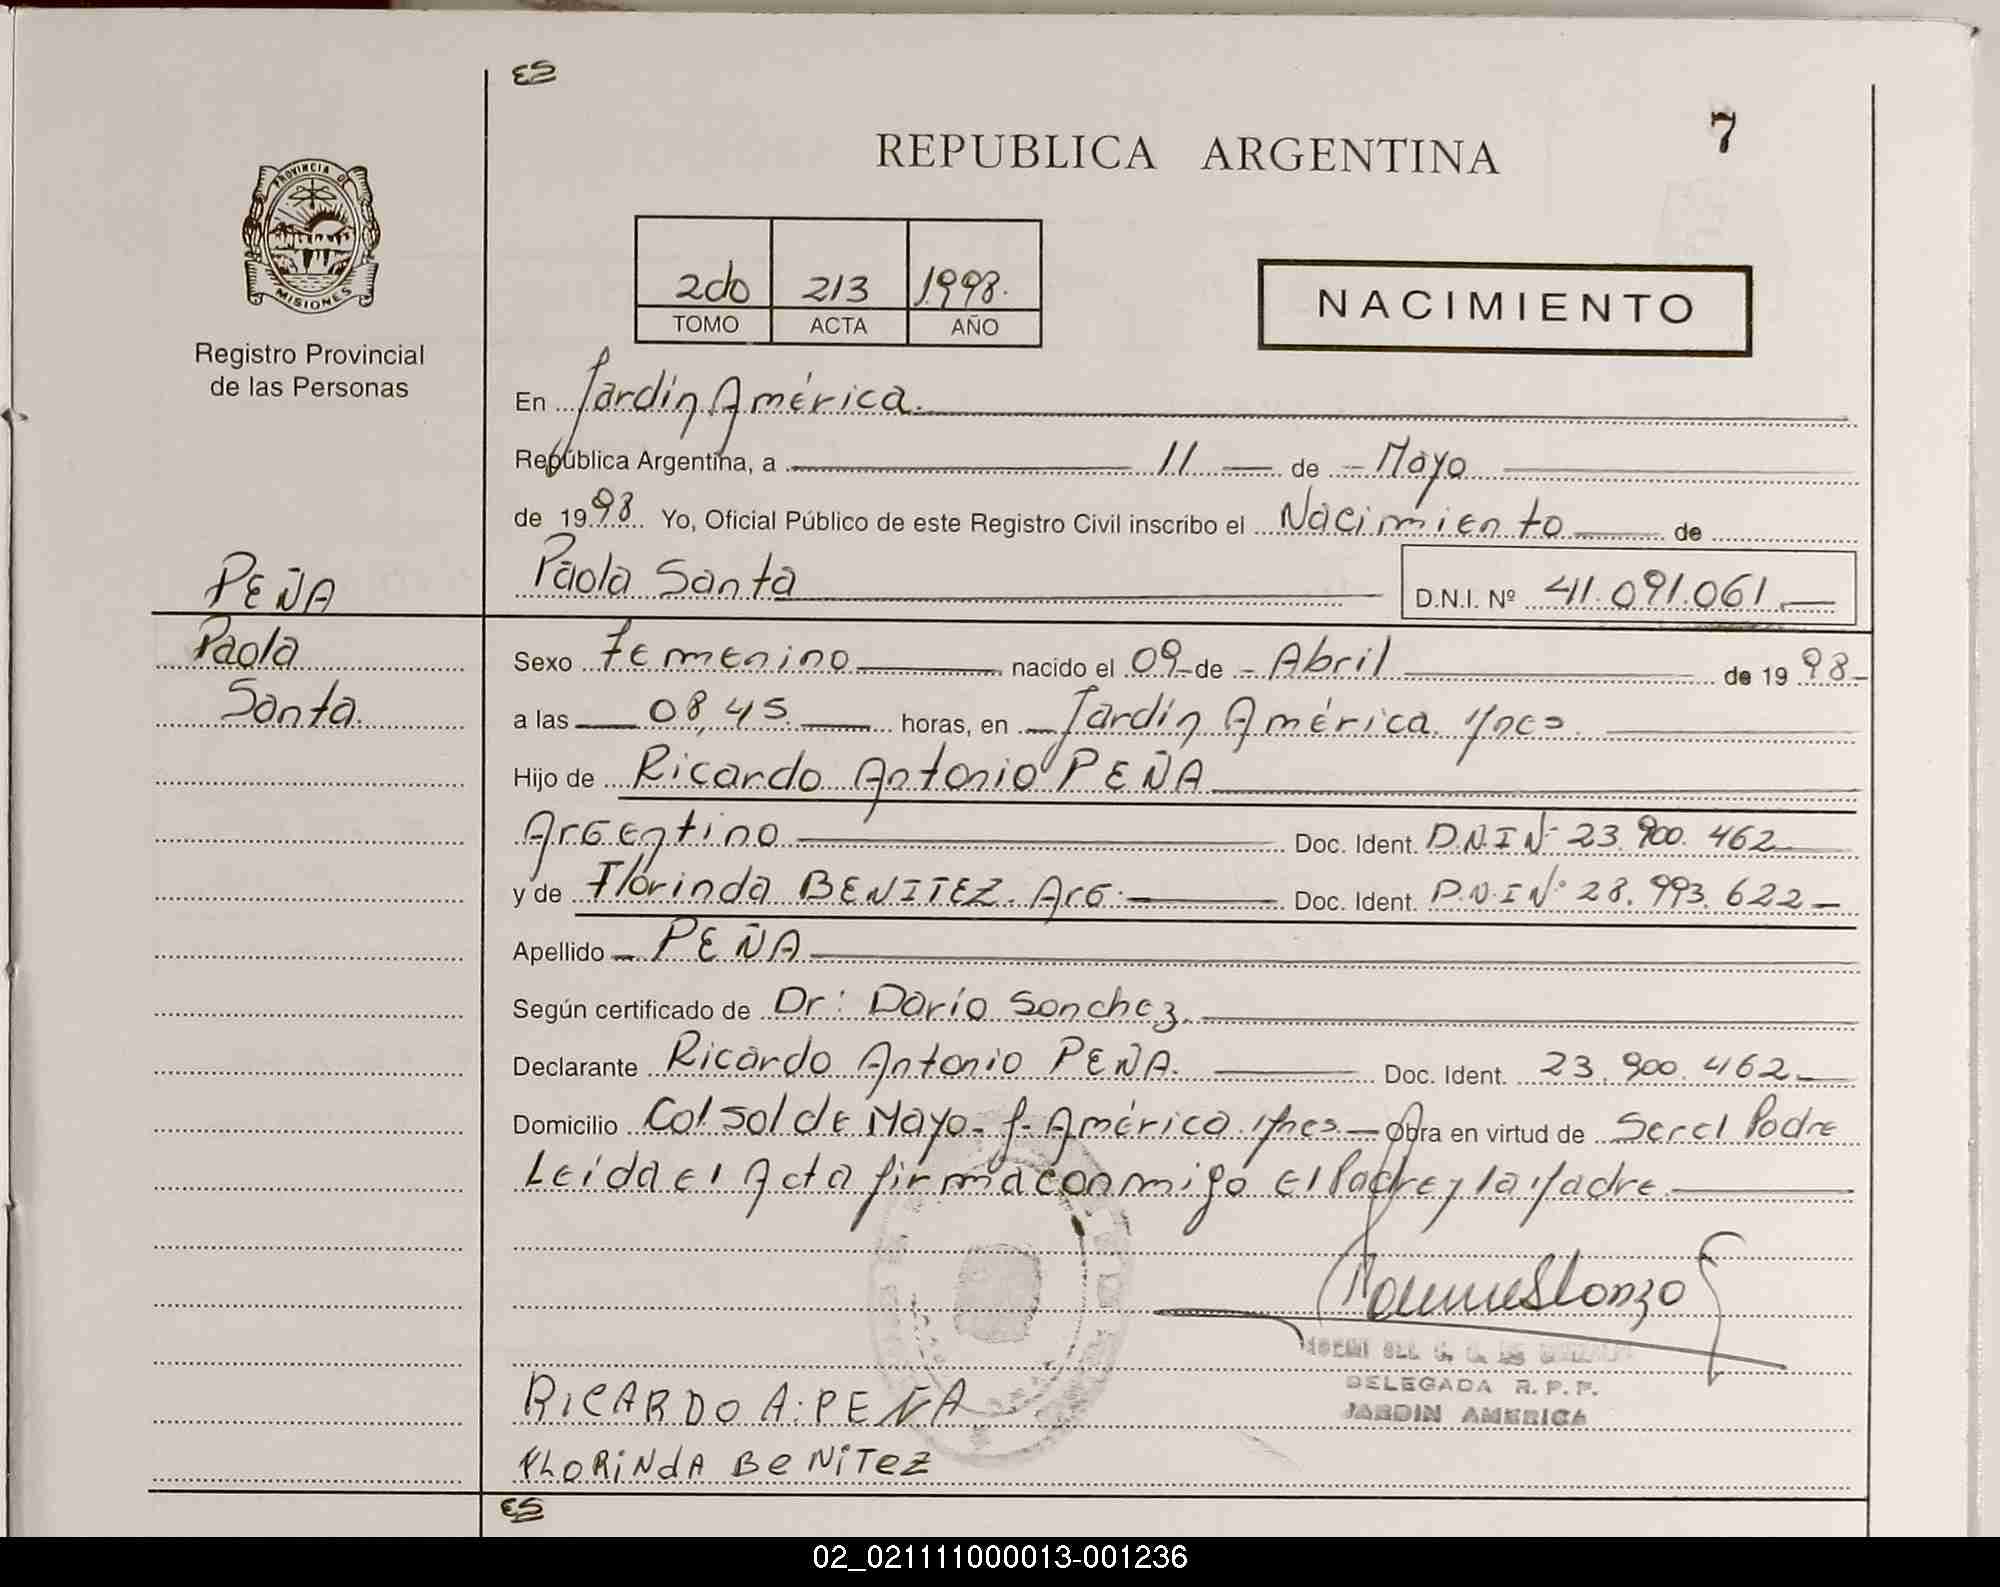 ES
7
REPUBLICA ARGENTINA
PROVINCIA DE
MISIONES
Registro Provincial
de las Personas
2do 213 1998.
TOMO ACTA AÑO
NACIMIENTO
En Jardín América.
República Argentina, a 11 de Mayo
de 1998 Yo, Oficial Público de este Registro Civil inscribo el Nacimiento de
PEÑA
Paola Santa D.N.I. Nº 41.091.061
Paola
Santa.
Sexo Femenino nacido el 09 de Abril de 1998
a las 08,45 horas, en Jardín América Mnes.
Hijo de Ricardo Antonio PEÑA
Argentino Doc. Ident. D.N.I Nº 23.900.462
y de Florinda BENITEZ. Arg. Doc. Ident. D.N.I Nº 28.993.622
Apellido PEÑA
Según certificado de Dr: Darío Sanchez.
Declarante Ricardo Antonio PEÑA. Doc. Ident. 23.900.462
Domicilio Col Sol de Mayo - J. América. Mnes Obra en virtud de Ser el Padre
Leída el Acta firma conmigo El Padre y la Madre.
DELEGADA R.P.P.
JARDIN AMERICA
RICARDO A. PEÑA
FLORINDA BENITEZ
ES
02_021111000013-001236